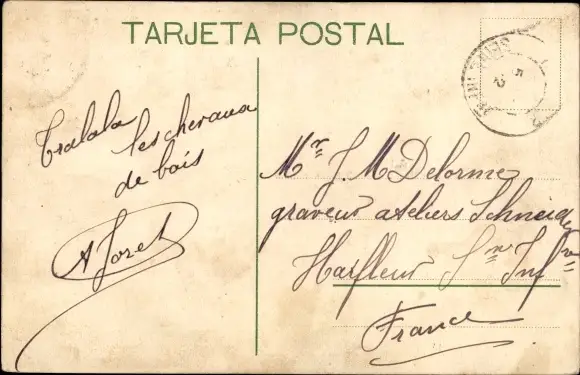 TARJETA POSTAL
Tralala
les chevaux
de bois
A Joret
Mr J. M Delorme
graveur ateliers Schneider
Harfleur Sne Infre
France